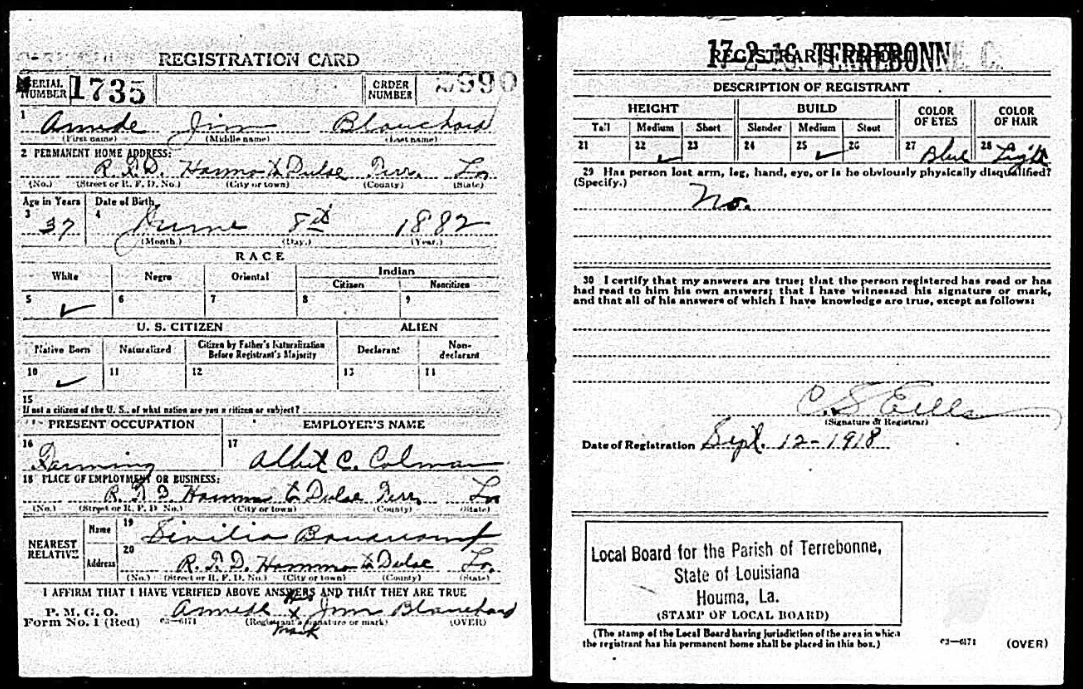 REGISTRATION CARD
SERIAL NUMBER 1735
ORDER NUMBER
1 Amede Jim Blanchard
(First name) (Middle name) (Last name)
2 PERMANENT HOME ADDRESS:
R.F.D. Houma Terr. La
(No.) (Street or R. F. D. No.) (City or town) (County) (State)
Age in Years Date of Birth
3 37 4 June 8th 1882
(Month.) (Day.) (Year.)
RACE
White Negro Oriental Indian
Citizen Noncitizen
5 ✓ 6 7 8 9
U. S. CITIZEN ALIEN
Native Born Naturalized Citizen by Father's Naturalization Before Registrant's Majority Declarant Non-declarant
10 ✓ 11 12 13 14
15
If not a citizen of the U. S., of what nation are you a citizen or subject?
PRESENT OCCUPATION EMPLOYER'S NAME
16 Farming 17 Albert C. Colman
18 PLACE OF EMPLOYMENT OR BUSINESS:
R.F.D. Houma Terr. La
(No.) (Street or R. F. D. No.) (City or town) (County) (State)
NEAREST RELATIVE
Name 19
Address 20 R.F.D. Houma La.
(No.) (Street or R. F. D. No.) (City or town) (County) (State)
I AFFIRM THAT I HAVE VERIFIED ABOVE ANSWERS AND THAT THEY ARE TRUE
P. M. G. O.
Form No. 1 (Red) 03—6171
his
x Jim Blanchard
(Registrant's signature or mark) (OVER)
mark
REGISTRAR'S REPORT
17-2-16 TERREBONN
DESCRIPTION OF REGISTRANT
HEIGHT BUILD COLOR OF EYES COLOR OF HAIR
Tall Medium Short Slender Medium Stout
21 22 ✓ 23 24 25 ✓ 26 27 Blue 28 Light
29 Has person lost arm, leg, hand, eye, or is he obviously physically disqualified?
(Specify.)
No.
30 I certify that my answers are true; that the person registered has read or has
had read to him his own answers; that I have witnessed his signature or mark,
and that all of his answers of which I have knowledge are true, except as follows:
C S Eells
(Signature of Registrar)
Date of Registration Sept. 12-1918
Local Board for the Parish of Terrebonne,
State of Louisiana
Houma, La.
(STAMP OF LOCAL BOARD)
(The stamp of the Local Board having jurisdiction of the area in which
the registrant has his permanent home shall be placed in this box.)
03—6171 (OVER)